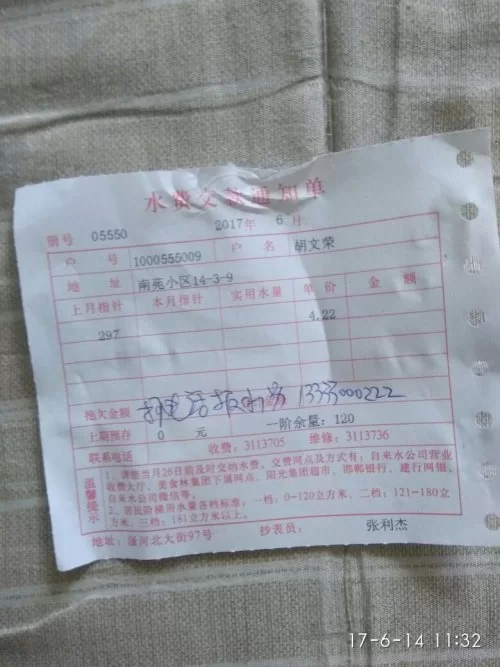 水费交款通知单
册号 05550 2017年 6月
户 号 1000555009 户 名 胡文荣
地 址 南苑小区14-3-9
上月指针 本月指针 实用水量 单价 金 额
297 4.22
拖欠金额 打电话报水费 13333000222
上期预存 0 元 一阶余量: 120
联系电话 收费: 3113705 维修: 3113736
温馨提示
1、请您当月26日前及时交纳水费。交费网点及方式有: 自来水公司营业
收费大厅、美食林集团下属网点、阳光集团超市、邯郸银行、建行网银、
自来水公司微信等。
2、居民阶梯用水量各档标准, 一档: 0-120立方米、二档: 121-180立
方米、三档: 181立方米以上。
地址: 滏河北大街97号 抄表员: 张利杰
17-6-14 11:32